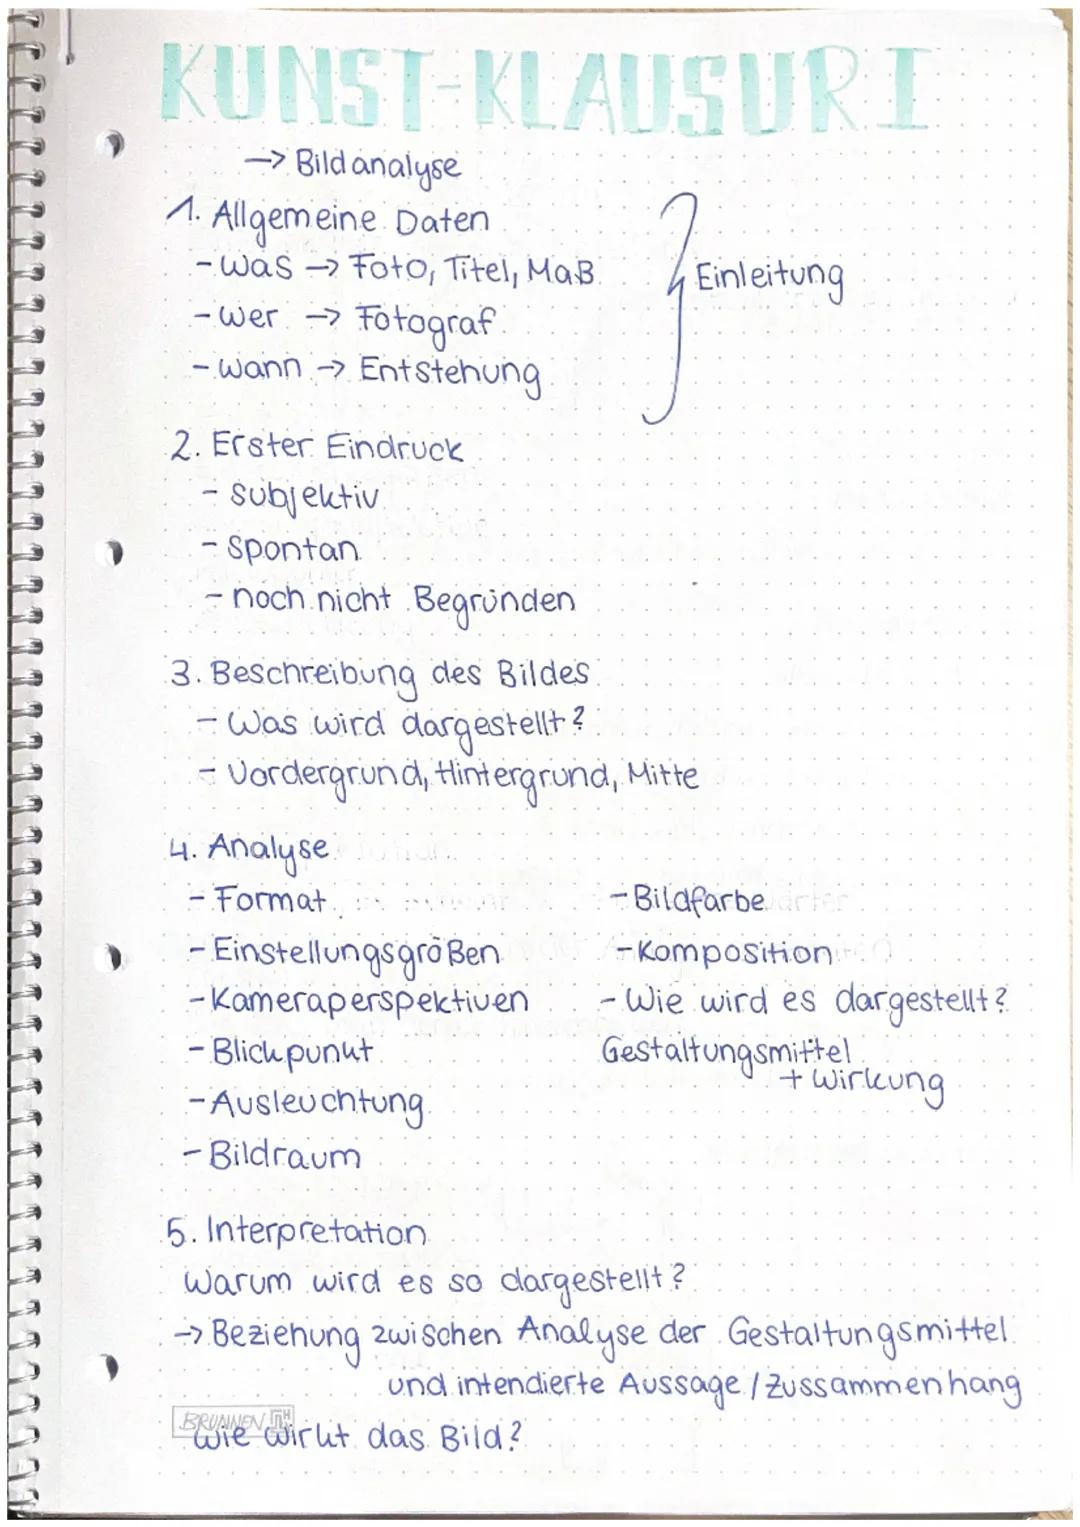 KUNST-KLAUSUR I
→ Bildanalyse
1. Allgemeine Daten
- was → Foto, Titel, Maß
- wer → Fotograf
- wann → Entstehung
Einleitung
2. Erster Eindruck
- subjektiv
- spontan
- noch nicht Begründen
3. Beschreibung des Bildes
- Was wird dargestellt?
- Vordergrund, Hintergrund, Mitte
4. Analyse
- Format
- Einstellungsgrößen
- Kameraperspektiven
- Blickpunkt
- Ausleuchtung
- Bildraum
- Bildfarbe
- Komposition
- Wie wird es dargestellt?
Gestaltungsmittel
+ Wirkung
5. Interpretation
Warum wird es so dargestellt?
→ Beziehung zwischen Analyse der Gestaltungsmittel
und intendierte Aussage / Zussammenhang
BRUNNEN
Wie wirkt das Bild?